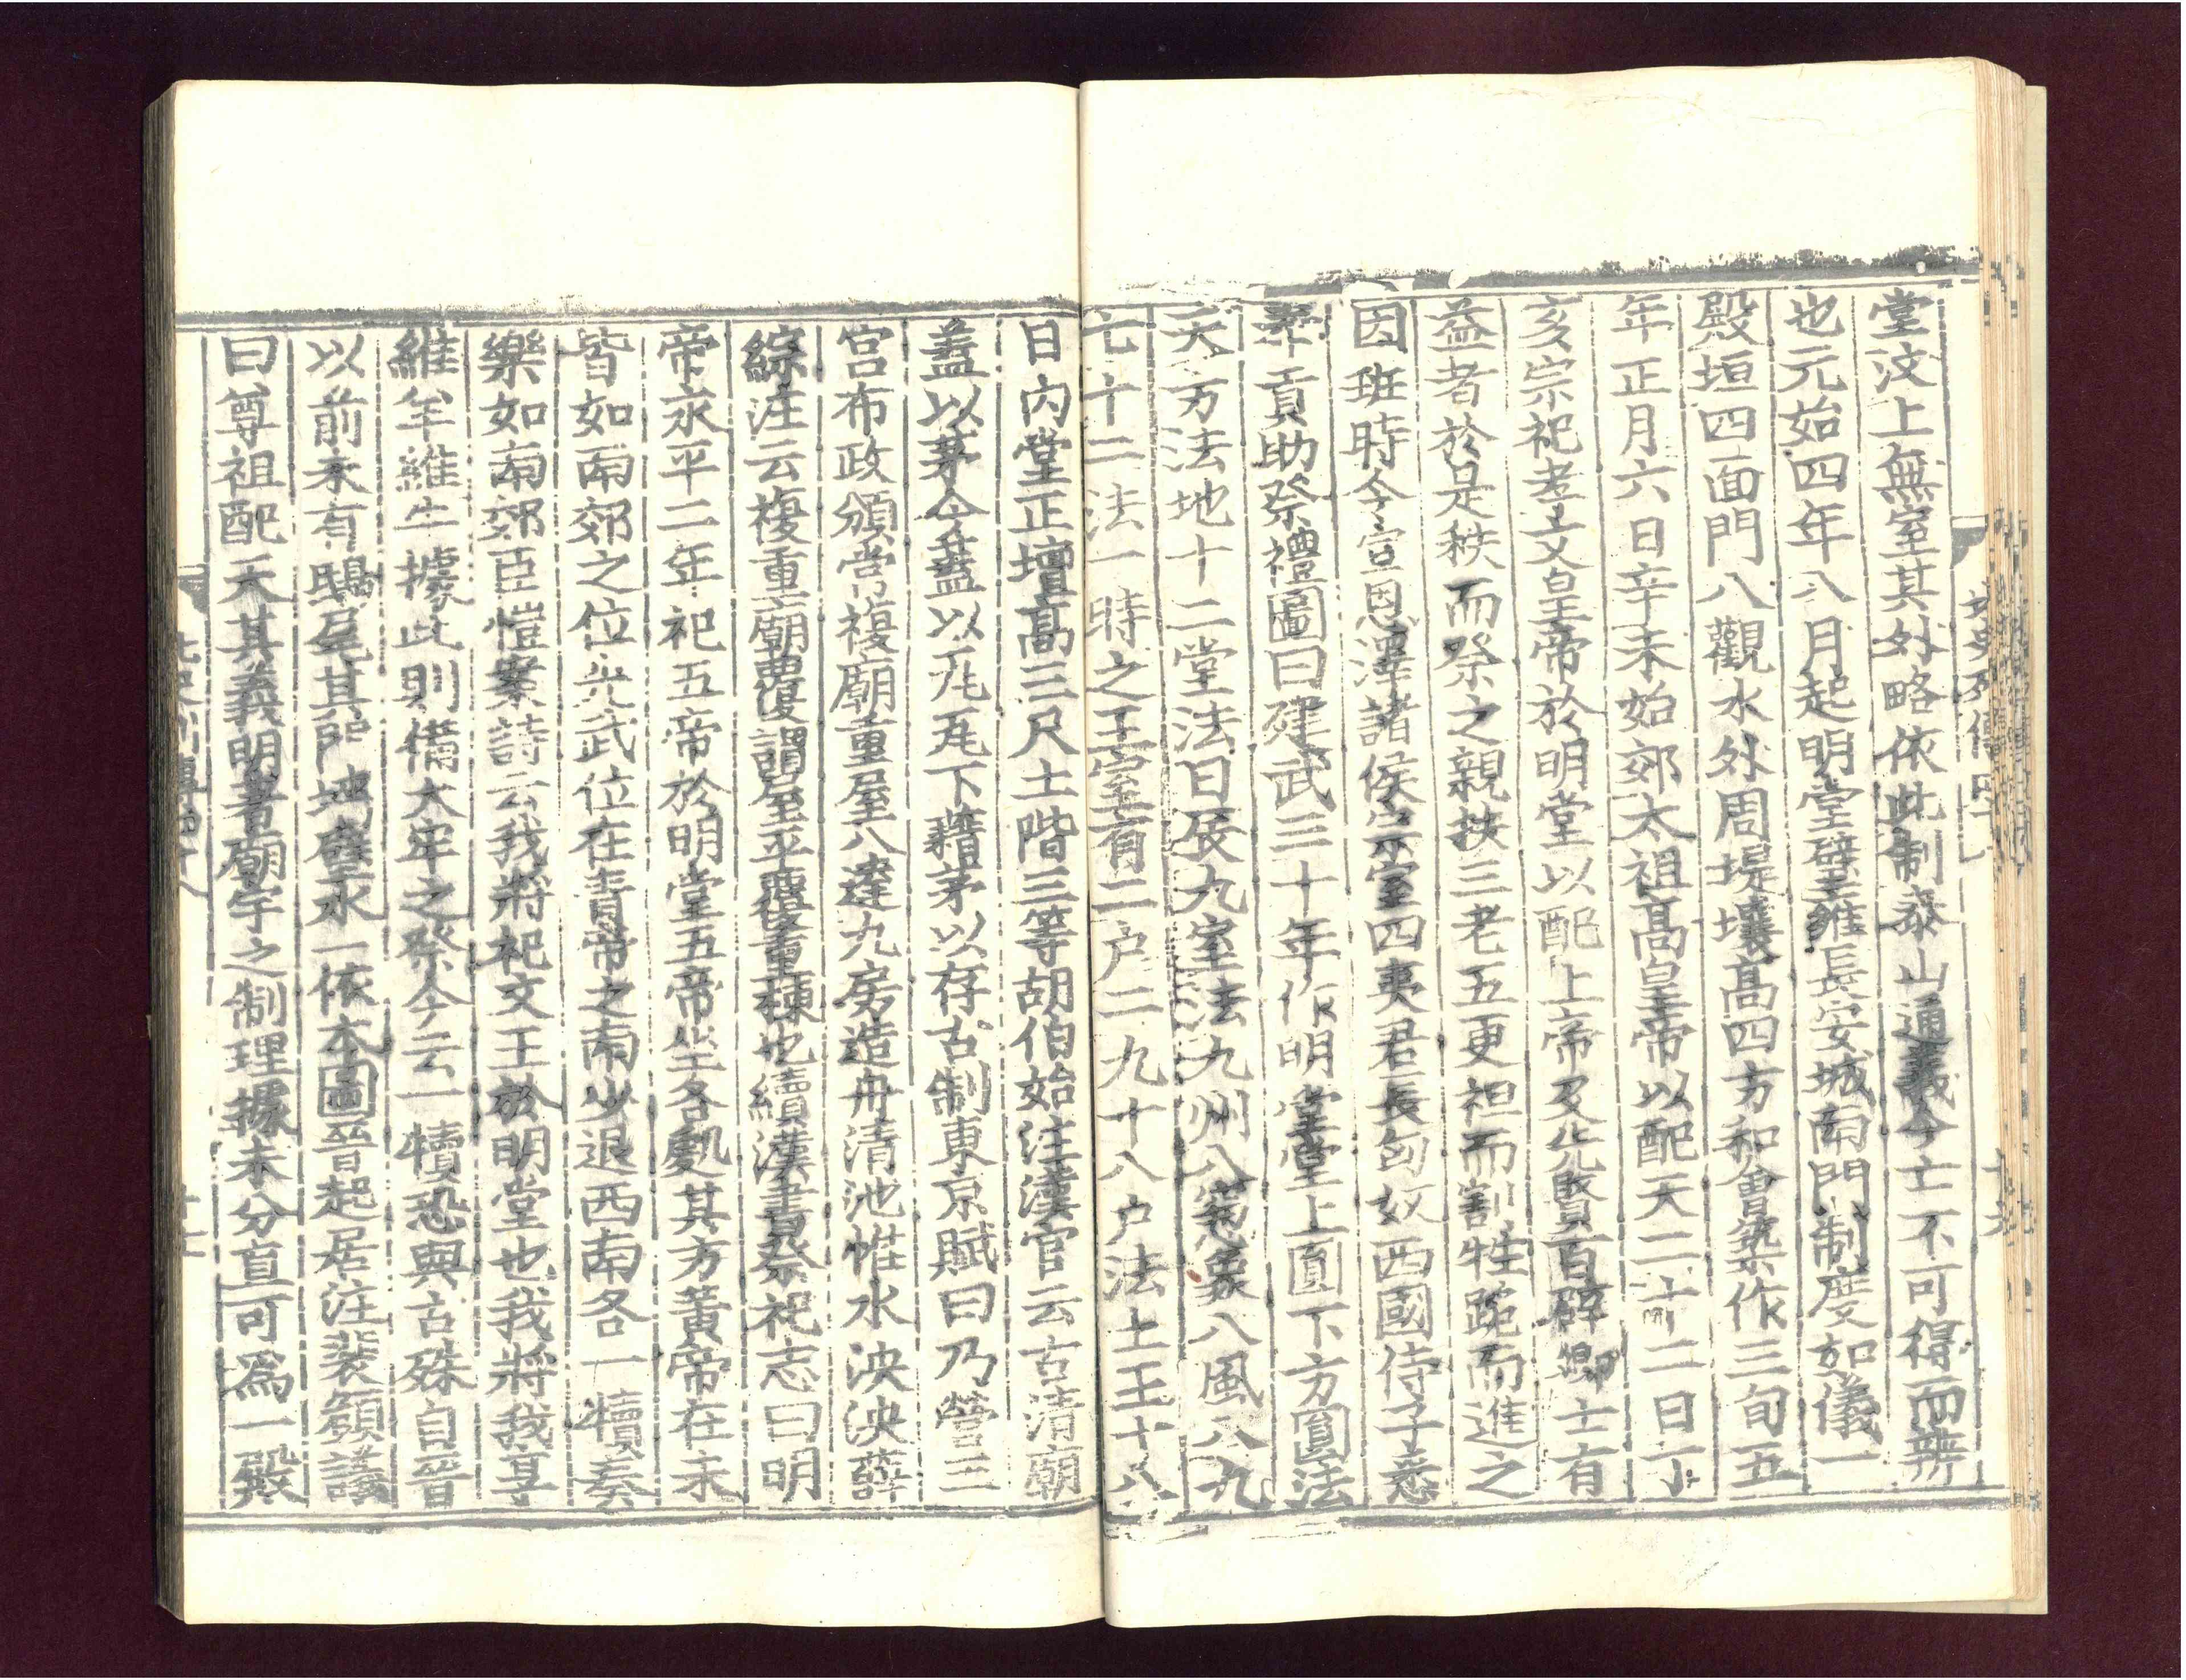 北史列傳四十八
堂汶上無室其外略依此制泰山通義今亡不可得而辨
也元始四年八月起明堂璧雍長安城南門制度如儀一
殿垣四面門八觀水外周堤壤高四方和會築作三旬五
年正月六日辛未始郊太祖高皇帝以配天二十二日丁
亥宗祀孝文皇帝於明堂以配上帝及先賢百辟卿士有
益者於是秩而祭之親扶三老五更袒而割牲跪而進之
因班時令宣恩澤諸侯宗室四夷君長匈奴西國侍子悉
奉貢助祭禮圖曰建武三十年作明堂堂上圓下方圓法
天方法地十二堂法日辰九室法九州八窓象八風八九
七十二法一時之王室有二户二九十八户法土王十八
日內堂正壇高三尺土階三等胡伯始注漢官云古清廟
蓋以茅今蓋以瓦瓦下藉茅以存古制東京賦曰乃營三
宮布政頒常複廟重屋八達九房造舟清池惟水泱泱薛
綜注云複重廟覆謂屋平覆重棟也續漢書祭祀志曰明
帝永平二年祀五帝於明堂五帝坐各處其方黃帝在未
皆如南郊之位光武位在青帝之南少退西南各一犢奏
樂如南郊臣愷案詩云我將祀文王於明堂也我將我享
維羊維牛據此則備太牢之祭今云一犢恐與古殊自晉
以前未有鴟尾其門墻壁水一依本圖晉起居注裴頠議
曰尊祖配天其義明著廟宇之制理據未分直可爲一殿